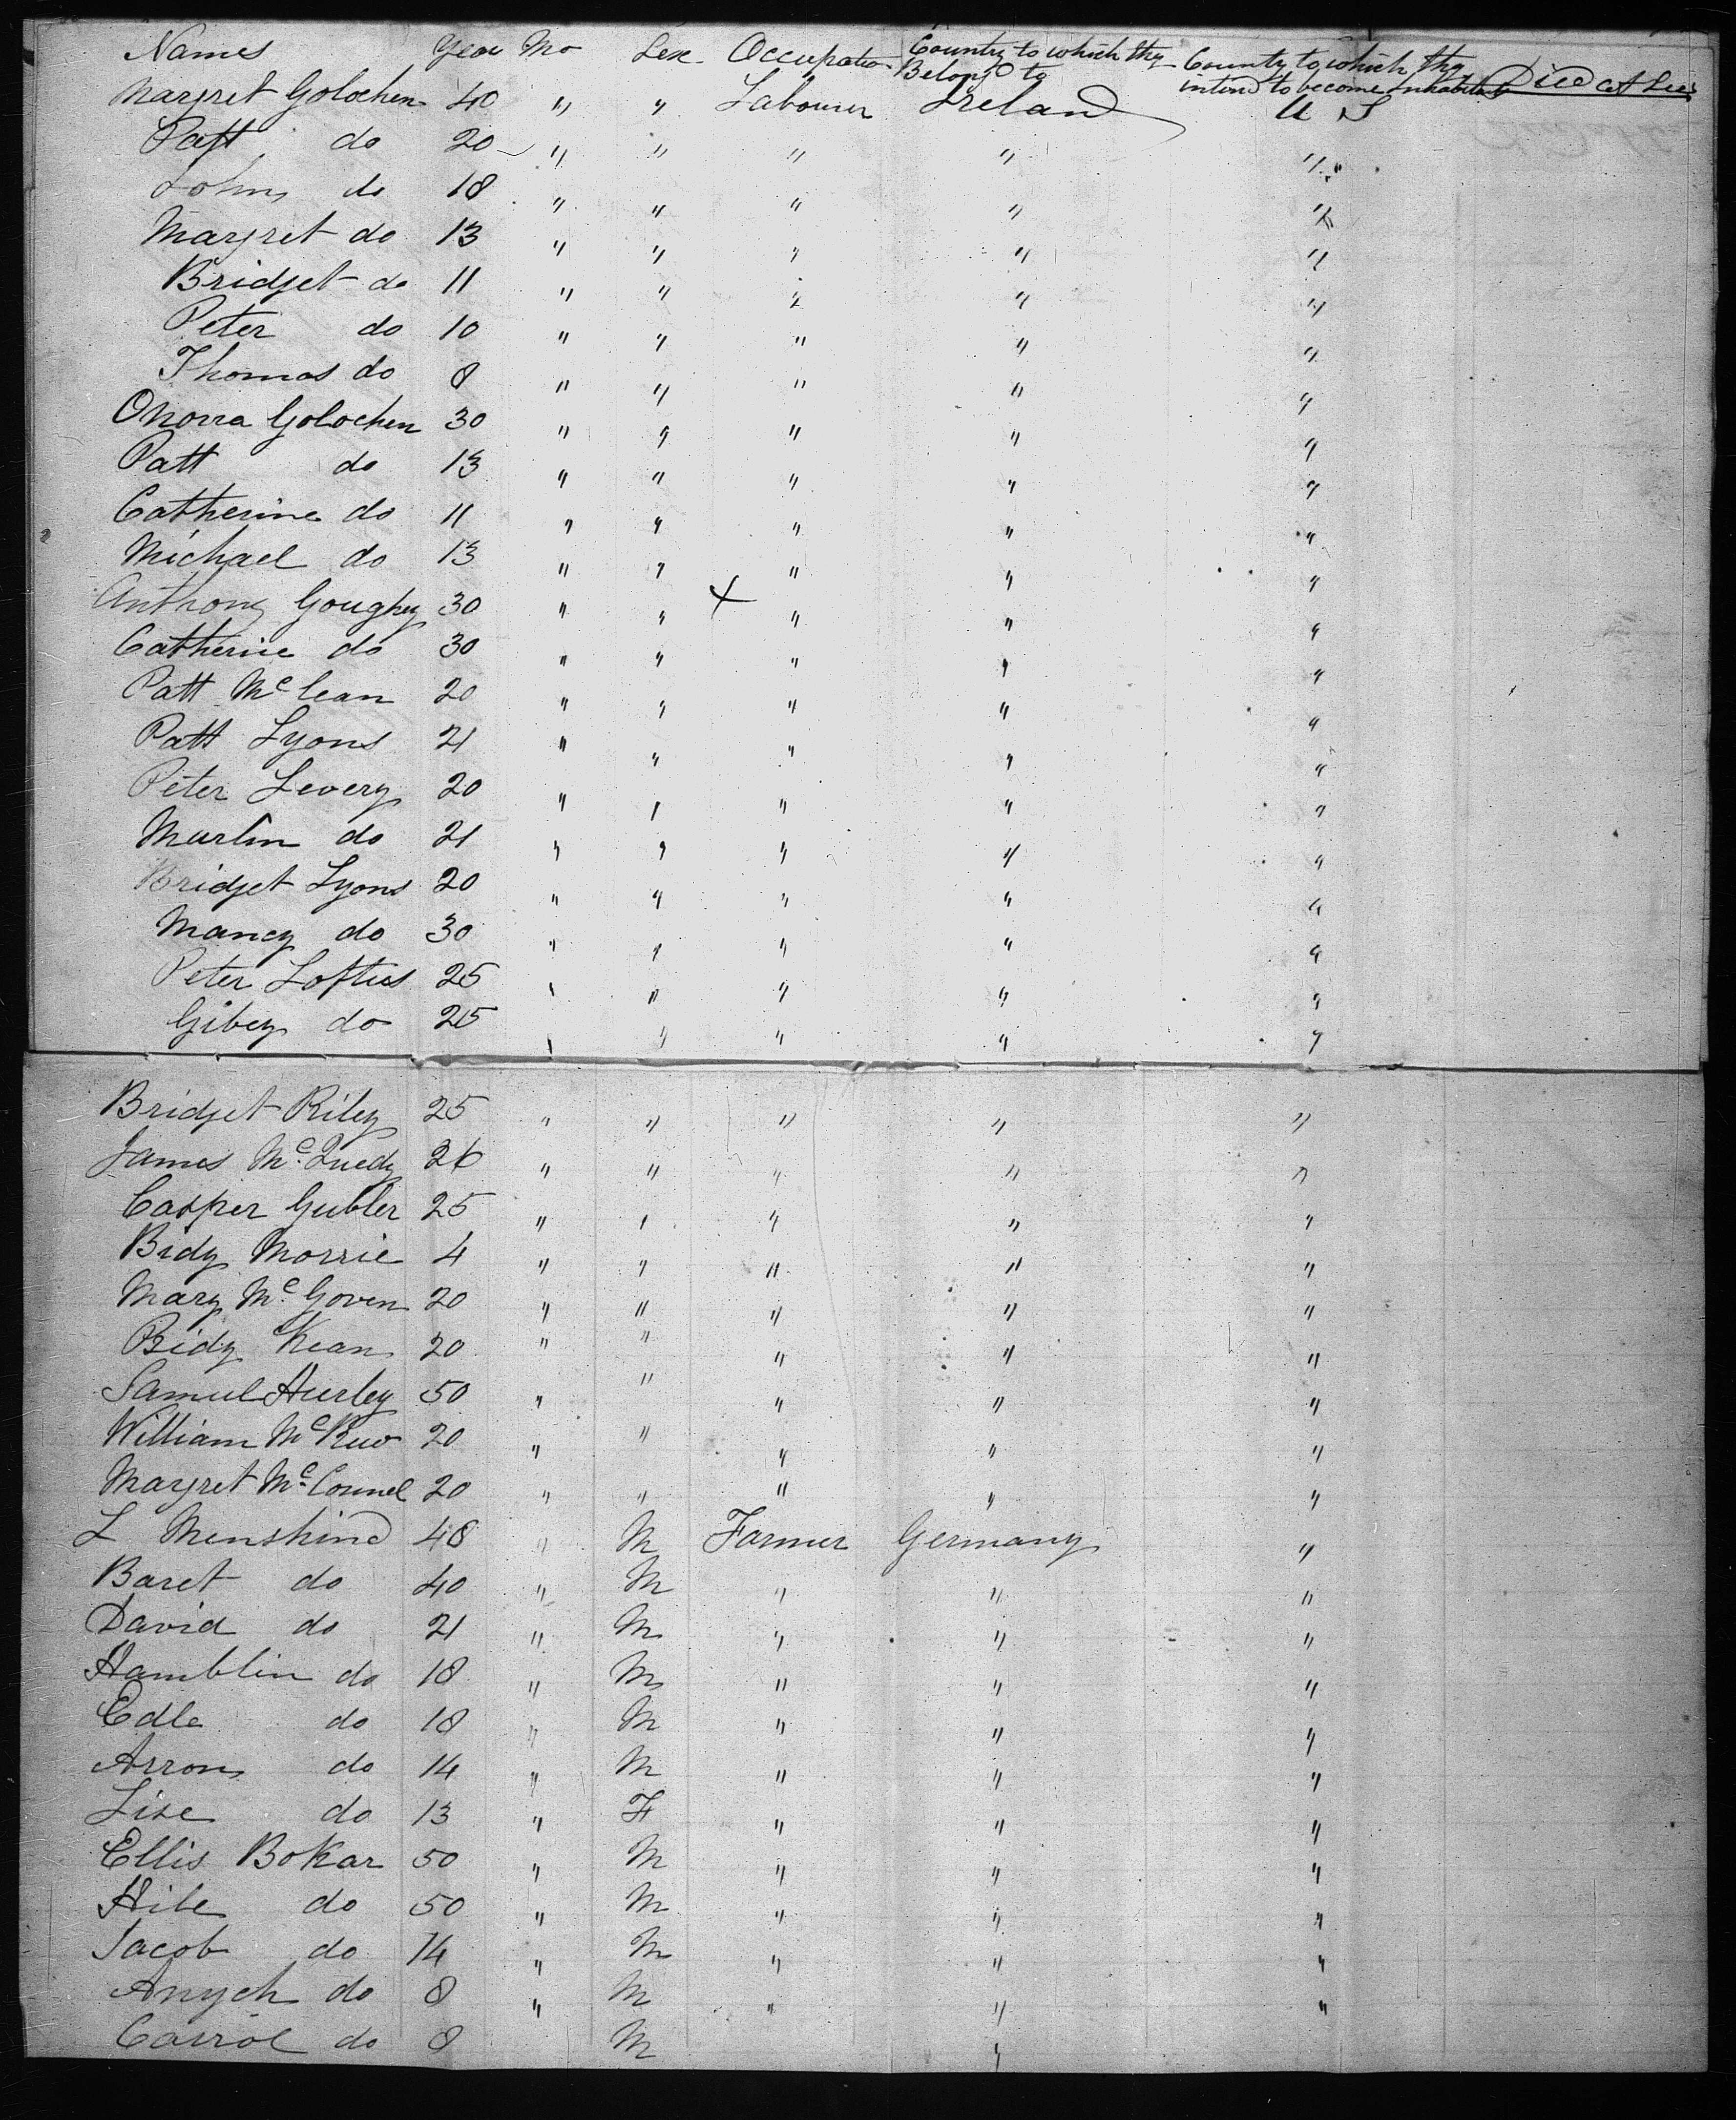 Names Year Mo Sex Occupation Country to which they Belong'd to Country to which they intend to become Inhabitants Died At Sea
Margret Golochen 40 " " Labourer Ireland U S
Patt do 20 " " " " "
John do 18 " " " " "
Margret do 13 " " " " "
Bridget do 11 " " " " "
Peter do 10 " " " " "
Thomas do 8 " " " " "
Onorra Golochen 30 " " " " "
Patt do 13 " " " " "
Catherine do 11 " " " " "
Michael do 13 " " " " "
Anthony Goughey 30 " " x " " "
Catherine do 30 " " " " "
Patt Mc lean 20 " " " " "
Patt Lyons 21 " " " " "
Peter Levery 20 " " " " "
Martin do 21 " " " " "
Bridget Lyons 20 " " " " "
Nancy do 30 " " " " "
Peter Loftus 25 " " " " "
Gibey do 25 " " " " "
Bridget Riley 25 " " " " "
James Mc Quedy 26 " " " " "
Casper Gubler 25 " " " " "
Bidy Morrie 4 " " " " "
Mary Mc Goven 20 " " " " "
Bidy Kean 20 " " " " "
Samul Hurley 50 " " " " "
William Mc Kew 20 " " " " "
Margret Mc Connel 20 " " " " "
L Menshind 48 " M Farmer Germany "
Baret do 40 " M " " "
David do 21 " M " " "
Hamblin do 18 " M " " "
Edle do 18 " M " " "
Arron do 14 " M " " "
Lise do 13 " F " " "
Ellis Bokar 50 " M " " "
Hile do 50 " M " " "
Jacob do 14 " M " " "
Anych do 8 " M " " "
Carrol do 8 M "